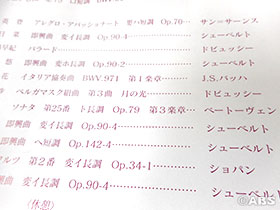 即興曲 変イ長調 Op.90-4 シューベルト
貴 アレグロ・アパッショナート 変ハ短調 Op.70 サン=サーンス
菜 即興曲 変イ長調 Op.90-4 シューベルト
早紀 バラード ドビュッシー
悠 即興曲 変ホ長調 Op.90-2 シューベルト
花 イタリア協奏曲 BWV.971 第1楽章 J.S.バッハ
ベルガマスク組曲 第3曲 月の光 ドビュッシー
ソナタ 第25番 ト長調 Op.79 第3楽章 ベートーヴェン
即興曲 変イ長調 Op.90-4 シューベルト
即興曲 ヘ短調 Op.142-4 シューベルト
ルツ 第2番 変イ長調 Op.34-1 ショパン
興曲 変イ長調 Op.90-4 シューベルト
《休憩》
© ABS